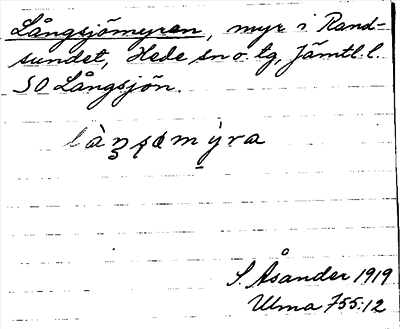 Långsjömyren, myr i Rand-
sundet, Hede sn o. tg, Jämtl. l.
SO Långsjön.
S. Åsander 1919
Ulma 755:12